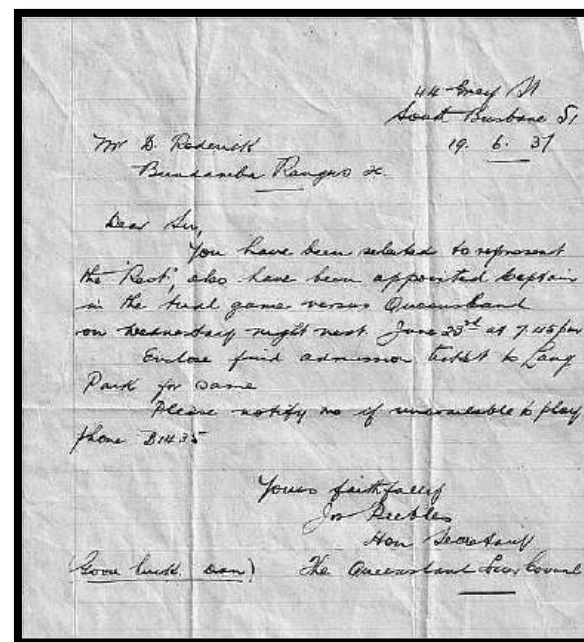 44 Grey St
South Brisbane S1
19. 6. 37
Mr D. Roderick
Bundamba Rangers
Dear Sir,
You have been selected to represent
the "Rest", also have been appointed Captain
in the trial game versus Queensland
on Wednesday night next June 23rd at 7.45 pm
Enclose find admission ticket to Lang
Park for same
Please notify me if unavailable to play
phone B1435
Yours faithfully
Peebles
Hon Secretary
(Good luck. Dan) The Queensland Council